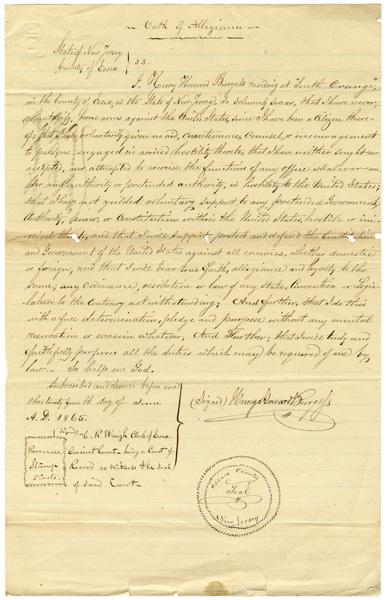 ~ Oath of Allegiance ~
State of New Jersey
County of Essex } SS.
I, Henry Howard Burgess residing at "South Orange"
in the County of Essex, & the State of New Jersey, do solemnly swear, that I have never,
voluntarily, borne arms against the United States, since I have been a Citizen there-
of; that I have voluntarily given no aid, countenance, Counsel, or encouragement
to persons engaged in armed hostility thereto, that I have neither sought nor
accepted, nor attempted to exercise the functions of any office whatever un-
der any authority or pretended authority, in hostility to the United States;
that I have not yielded voluntary support to any pretended Government,
Authority, power, or Constitution within the United States, hostile or ini-
mical thereto, and that I will support, protect and defend the Constitution
and Government of the United States against all enemies, whether domestic
or foreign, and that I will bear true faith, allegiance and loyalty to the
Same, any Ordinance, resolution or Law of any State, Convention or Legis-
lature to the Contrary notwithstanding; And further, that I do this
with a full determination, pledge and purpose without any mental
reservation or evasion whatever, And Further; that I will truly and
faithfully perform all the duties which may be required of me by
law. — So help me God.
Subscribed and Sworn before me
this day of June
A.D. 1865.
(Signed) Henry Howard Burgess
Clerk of Essex
Circuit Court - being a Court of
Record as witness the Seal
of said Court -
Revenue
Stamp
5 cents
Essex County
Seal
New Jersey